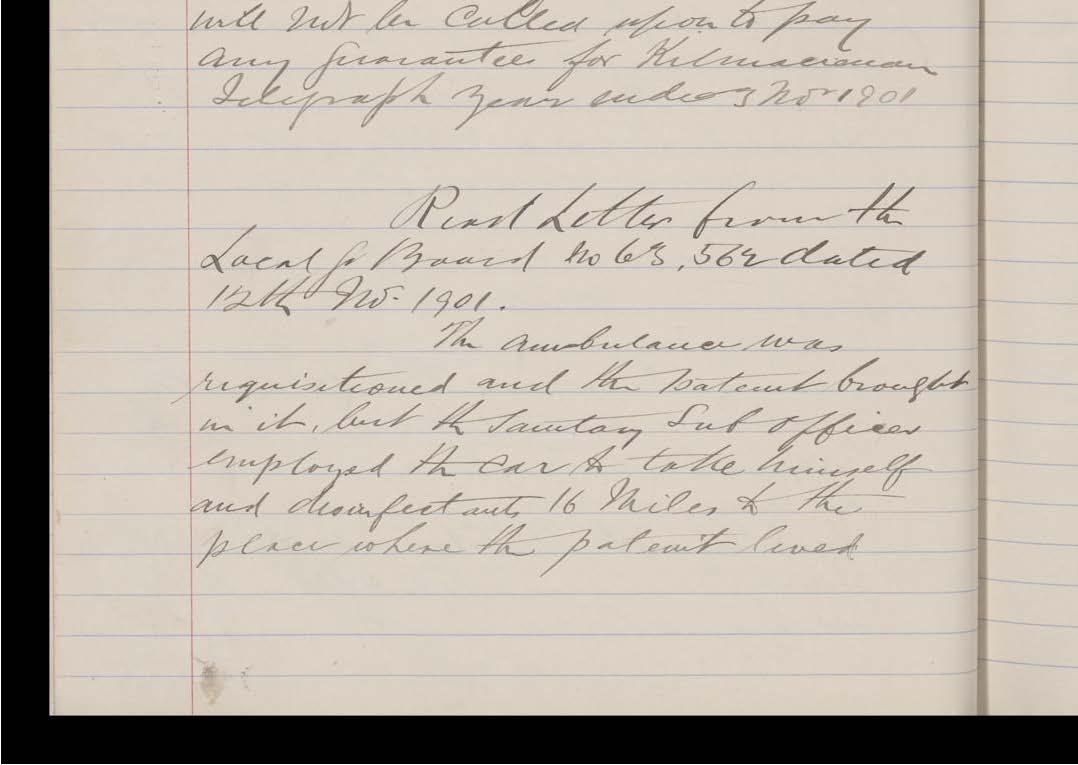 will not be called upon to pay
any guarantee for Kilmacrenan
Telegraph year ended 3 Nov 1901
Read Letter from the
Local G Board No 63,562 dated
12th Nov. 1901.
The ambulance was
requisitioned and the patient brought
in it, but the Sanitary Sub officer
employed the car to take himself
and disinfectants 16 Miles to the
place where the patient lived